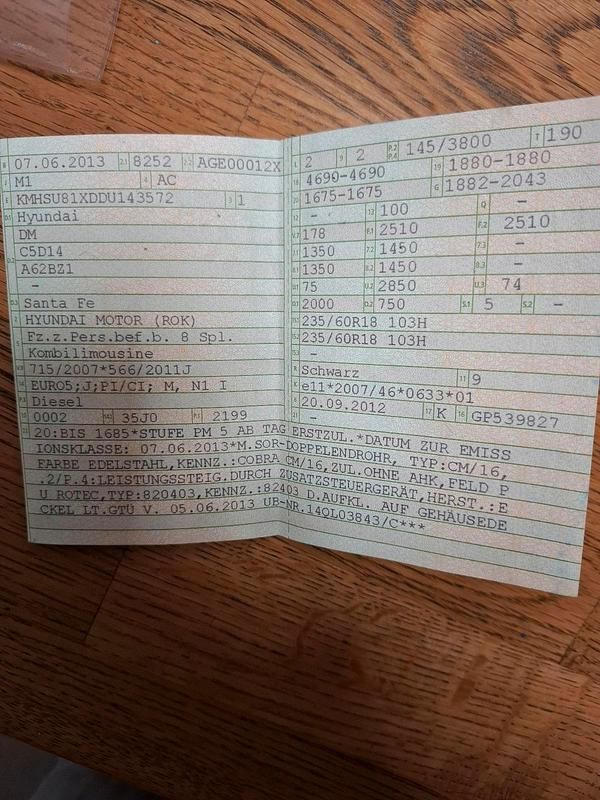 B 07.06.2013 2.1 8252 2.2 AGE00012X
J M1 4 AC
E KMHSU81XDDU143572 3 1
D.1 Hyundai
DM
C5D14
A62BZ1
-
D.3 Santa Fe
2 HYUNDAI MOTOR (ROK)
5 Fz.z.Pers.bef.b. 8 Spl.
Kombilimousine
V.9 715/2007*566/2011J
14 EURO5;J;PI/CI; M, N1 I
P.3 Diesel
10 0002 14.1 35J0 P.1 2199
L 2 9 2 P.2 P.4 145/3800 T 190
18 4690-4690 19 1880-1880
20 1675-1675 G 1882-2043
12 - 13 100 Q -
V.7 178 F.1 2510 F.2 2510
7.1 1350 7.2 1450 7.3 -
8.1 1350 8.2 1450 8.3 -
U.1 75 U.2 2850 U.3 74
O.1 2000 O.2 750 S.1 5 S.2 -
15.1 235/60R18 103H
15.2 235/60R18 103H
15.3 -
R Schwarz 11 9
K e11*2007/46*0633*01
6 20.09.2012 17 K 16 GP539827
21 -
22 20:BIS 1685*STUFE PM 5 AB TAG ERSTZUL.*DATUM ZUR EMISS
IONSKLASSE: 07.06.2013*M.SOR-DOPPELENDROHR, TYP:CM/16,
FARBE EDELSTAHL,KENNZ.:COBRA CM/16,ZUL.OHNE AHK,FELD P
.2/P.4:LEISTUNGSSTEIG.DURCH ZUSATZSTEUERGERÄT,HERST.:E
U ROTEC,TYP:820403,KENNZ.:82403 D.AUFKL. AUF GEHÄUSEDE
CKEL LT.GTÜ V. 05.06.2013 UB-NR.14QL03843/C***